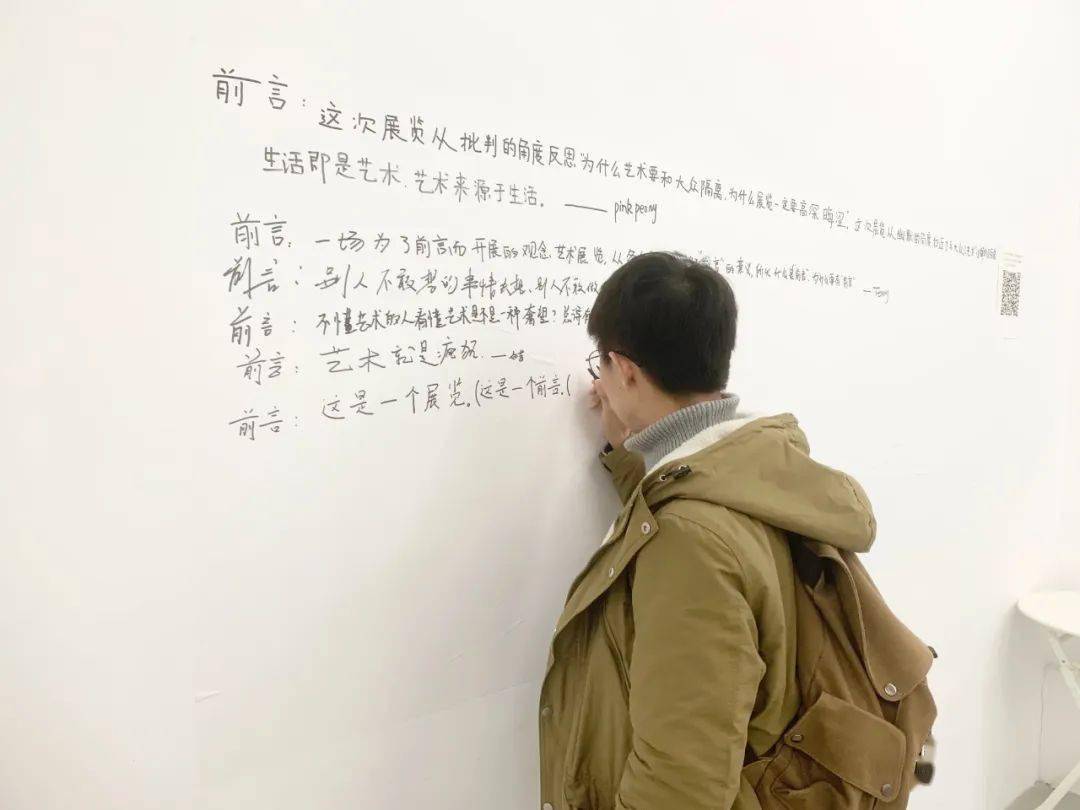 前言：这次展览从批判的角度反思为什么艺术要和大众隔离，为什么展览一定要高深晦涩，这次展览从幽默的角度
生活即是艺术，艺术来源于生活。 —— pink peony
前言：一场为了前言而开展的观念艺术展览，从 的意义，所以什么是前言，为什么要有前言 —
前言：别人不敢 的事情去想，别人不敢做
前言：不懂艺术的人看懂艺术是不是一种奢望？总
前言：艺术就是 —
前言：这是一个展览。(这是一个前言。(